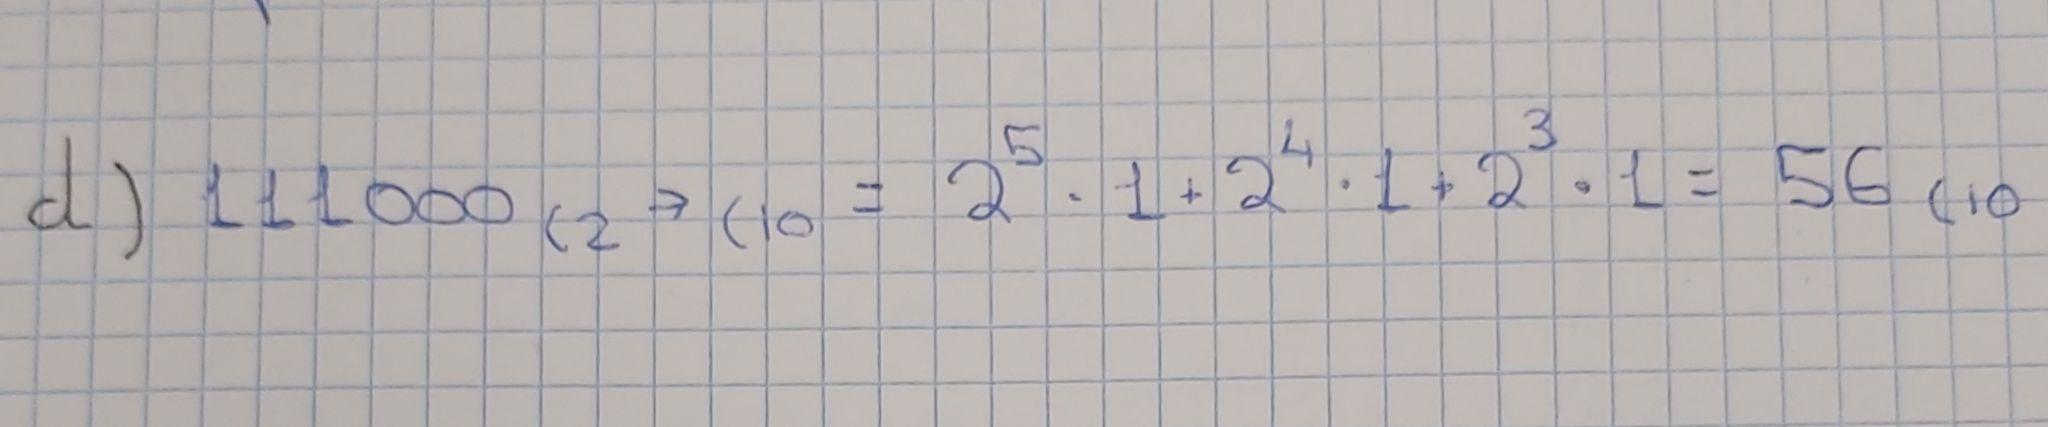 d) 111000 (2 → (10 = 2⁵ · 1 + 2⁴ · 1 + 2³ · 1 = 56 (10